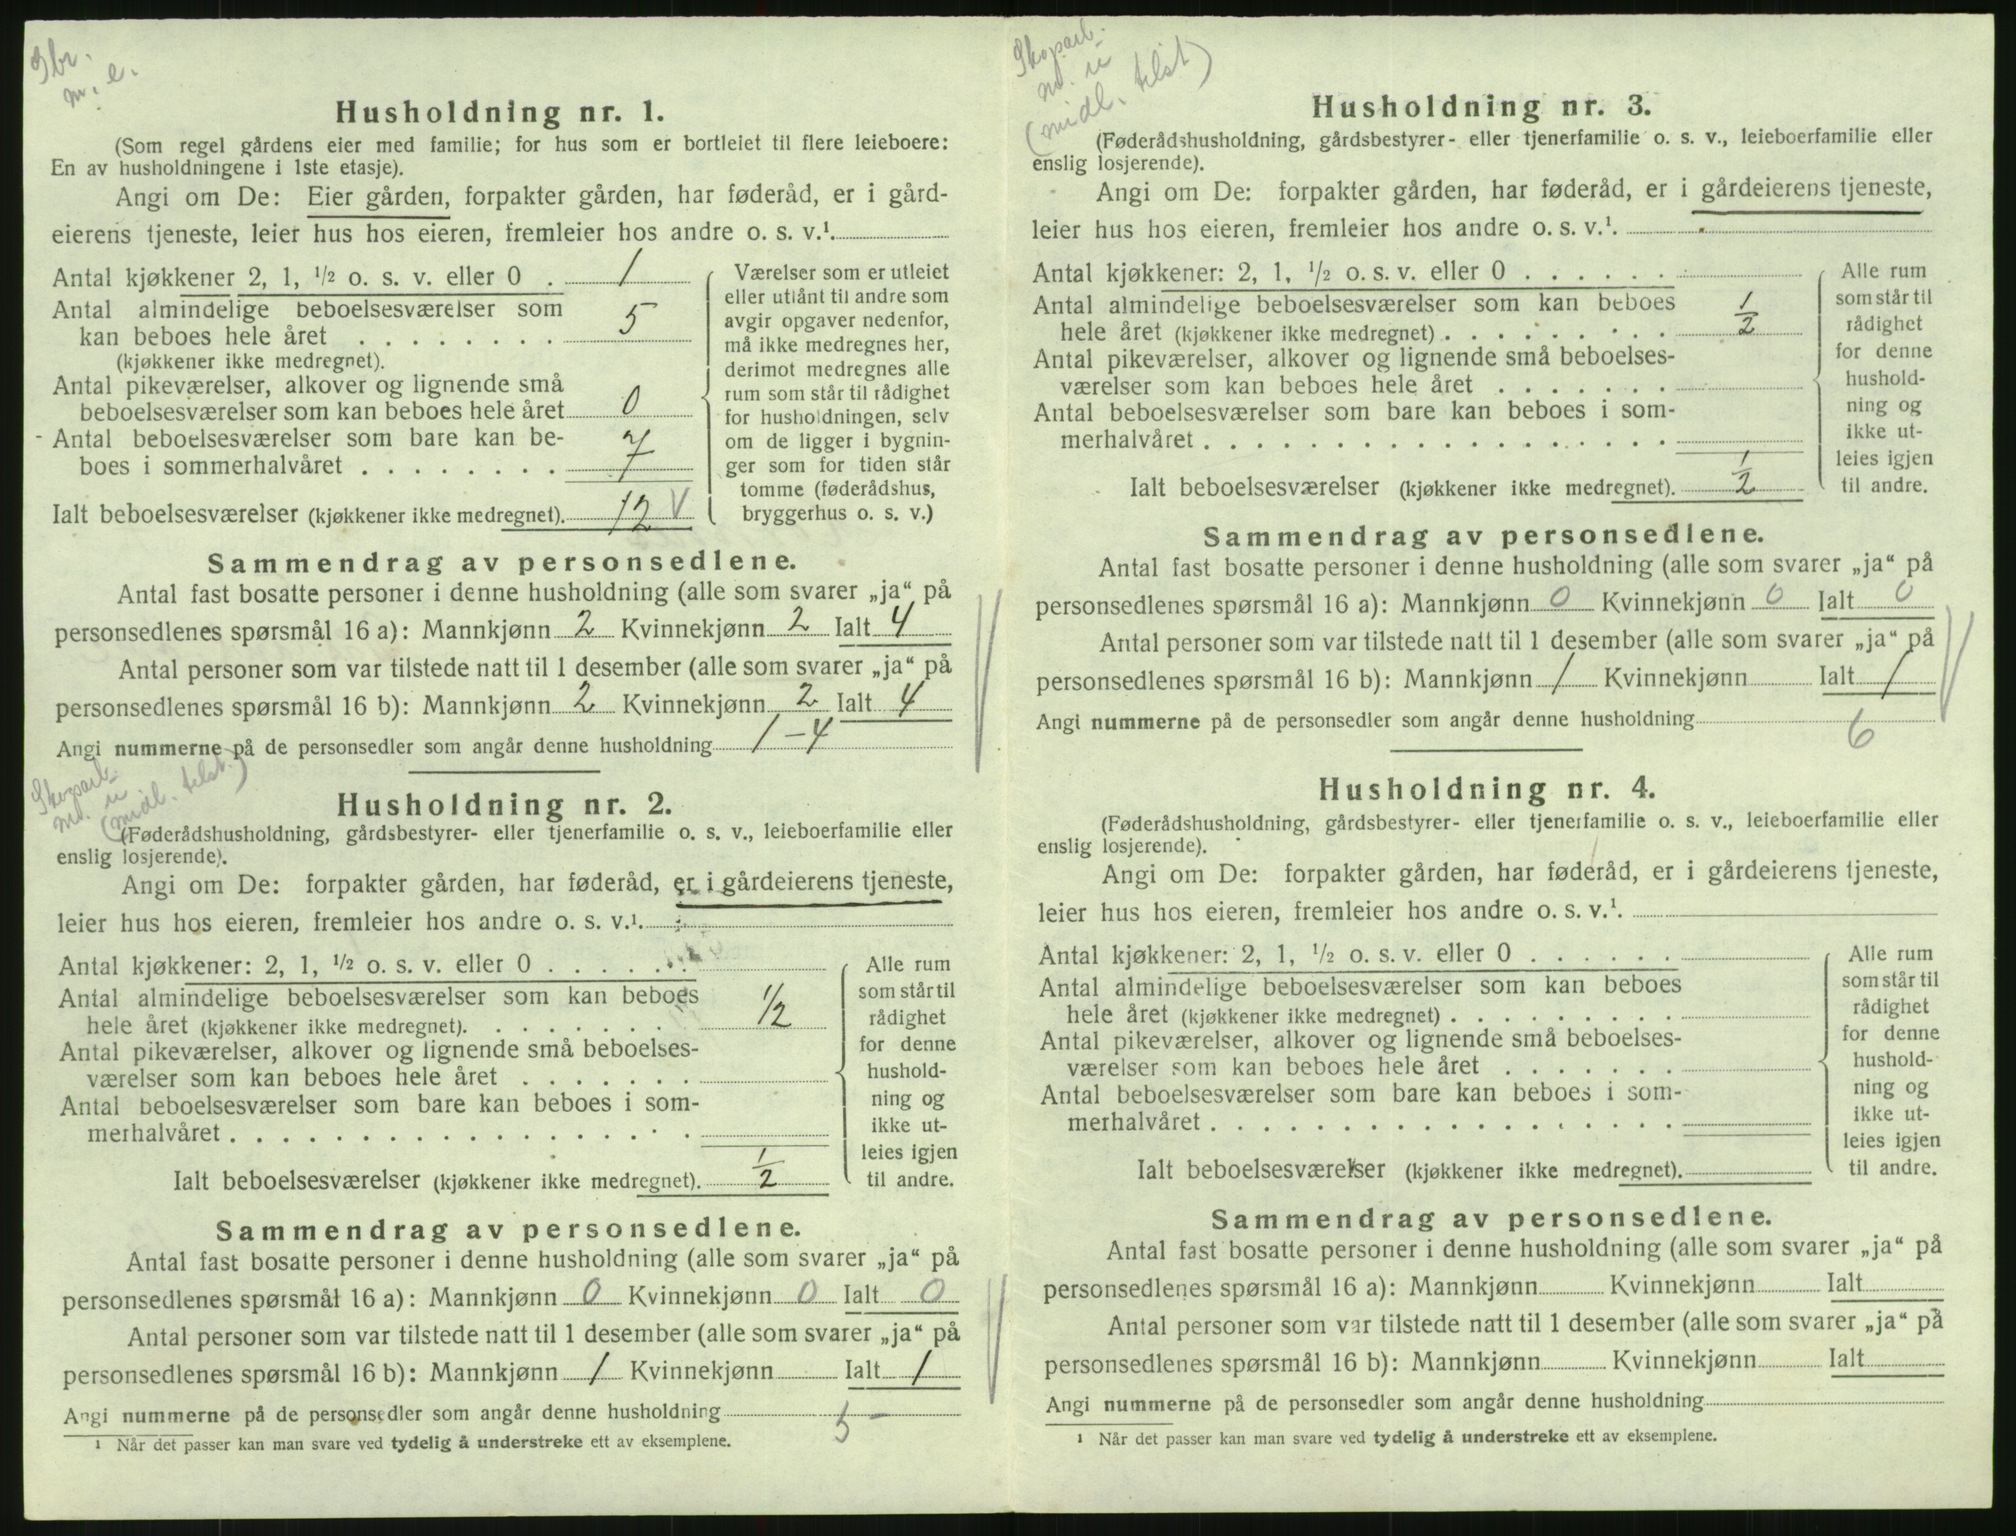 Gbr.
m. e.
Husholdning nr. 1.
(Som regel gårdens eier med familie; for hus som er bortleiet til flere leieboere:
En av husholdningene i 1ste etasje).
Angi om De: Eier gården, forpakter gården, har føderåd, er i gård-
eierens tjeneste, leier hus hos eieren, fremleier hos andre o. s. v.¹.
Antal kjøkkener 2, 1, ½ o. s. v. eller 0 . 1
Antal almindelige beboelsesværelser som
kan beboes hele året . . . . . . . . 5
(kjøkkener ikke medregnet).
Antal pikeværelser, alkover og lignende små
beboelsesværelser som kan beboes hele året 0
Antal beboelsesværelser som bare kan be-
boes i sommerhalvåret . . . . . . . . 7
Ialt beboelsesværelser (kjøkkener ikke medregnet). 12 V
Værelser som er utleiet
eller utlånt til andre som
avgir opgaver nedenfor,
må ikke medregnes her,
derimot medregnes alle
rum som står til rådighet
for husholdningen, selv
om de ligger i bygnin-
ger som for tiden står
tomme (føderådshus,
bryggerhus o. s. v.)
Sammendrag av personsedlene.
Antal fast bosatte personer i denne husholdning (alle som svarer „ja“ på
personsedlenes spørsmål 16 a): Mannkjønn 2 Kvinnekjønn 2 Ialt 4
Antal personer som var tilstede natt til 1 desember (alle som svarer „ja“ på
personsedlenes spørsmål 16 b): Mannkjønn 2 Kvinnekjønn 2 Ialt 4
Angi nummerne på de personsedler som angår denne husholdning 1 - 4
Skogsarb.
m. u
(midl. tilst.)
Husholdning nr. 2.
(Føderådshusholdning, gårdsbestyrer- eller tjenerfamilie o. s. v., leieboerfamilie eller
enslig losjerende).
Angi om De: forpakter gården, har føderåd, er i gårdeierens tjeneste,
leier hus hos eieren, fremleier hos andre o. s. v.¹.
Antal kjøkkener: 2, 1, ½ o. s. v. eller 0 . . . . . .
Antal almindelige beboelsesværelser som kan beboes
hele året (kjøkkener ikke medregnet). . . . . . . . 1/2
Antal pikeværelser, alkover og lignende små beboelses-
værelser som kan beboes hele året . . . . . . .
Antal beboelsesværelser som bare kan beboes i som-
merhalvåret . . . . . . . . . . . . . . . . . .
Ialt beboelsesværelser (kjøkkener ikke medregnet). 1/2
Alle rum
som står til
rådighet
for denne
hushold-
ning og
ikke ut-
leies igjen
til andre.
Sammendrag av personsedlene.
Antal fast bosatte personer i denne husholdning (alle som svarer „ja“ på
personsedlenes spørsmål 16 a): Mannkjønn 0 Kvinnekjønn 0 Ialt 0
Antal personer som var tilstede natt til 1 desember (alle som svarer „ja“ på
personsedlenes spørsmål 16 b): Mannkjønn 1 Kvinnekjønn Ialt 1
Angi nummerne på de personsedler som angår denne husholdning 5
¹ Når det passer kan man svare ved tydelig å understreke ett av eksemplene.
Skogsarb.
m. u
(midl. tilst)
Husholdning nr. 3.
(Føderådshusholdning, gårdsbestyrer- eller tjenerfamilie o. s. v., leieboerfamilie eller
enslig losjerende).
Angi om De: forpakter gården, har føderåd, er i gårdeierens tjeneste,
leier hus hos eieren, fremleier hos andre o. s. v.¹.
Antal kjøkkener: 2, 1, ½ o. s. v. eller 0 . . . . . .
Antal almindelige beboelsesværelser som kan beboes
hele året (kjøkkener ikke medregnet) . . . . . . . . 1/2
Antal pikeværelser, alkover og lignende små beboelses-
værelser som kan beboes hele året . . . . . . .
Antal beboelsesværelser som bare kan beboes i som-
merhalvåret . . . . . . . . . . . . . . . . . .
Ialt beboelsesværelser (kjøkkener ikke medregnet). 1/2
Alle rum
som står til
rådighet
for denne
hushold-
ning og
ikke ut-
leies igjen
til andre.
Sammendrag av personsedlene.
Antal fast bosatte personer i denne husholdning (alle som svarer „ja“ på
personsedlenes spørsmål 16 a): Mannkjønn 0 Kvinnekjønn 0 Ialt 0
Antal personer som var tilstede natt til 1 desember (alle som svarer „ja“ på
personsedlenes spørsmål 16 b): Mannkjønn 1 Kvinnekjønn Ialt 1
Angi nummerne på de personsedler som angår denne husholdning 6
Husholdning nr. 4.
(Føderådshusholdning, gårdsbestyrer- eller tjenerfamilie o. s. v., leieboerfamilie eller
enslig losjerende).
Angi om De: forpakter gården, har føderåd, er i gårdeierens tjeneste,
leier hus hos eieren, fremleier hos andre o. s. v.¹.
Antal kjøkkener: 2, 1, ½ o. s. v. eller 0 . . . . . .
Antal almindelige beboelsesværelser som kan beboes
hele året (kjøkkener ikke medregnet) . . . . . . . . .
Antal pikeværelser, alkover og lignende små beboelses-
værelser som kan beboes hele året . . . . . . .
Antal beboelsesværelser som bare kan beboes i som-
merhalvåret . . . . . . . . . . . . . . . . . .
Ialt beboelsesværelser (kjøkkener ikke medregnet).
Alle rum
som står til
rådighet
for denne
hushold-
ning og
ikke ut-
leies igjen
til andre.
Sammendrag av personsedlene.
Antal fast bosatte personer i denne husholdning (alle som svarer „ja“ på
personsedlenes spørsmål 16 a): Mannkjønn Kvinnekjønn Ialt
Antal personer som var tilstede natt til 1 desember (alle som svarer „ja“ på
personsedlenes spørsmål 16 b): Mannkjønn Kvinnekjønn Ialt
Angi nummerne på de personsedler som angår denne husholdning
¹ Når det passer kan man svare ved tydelig å understreke ett av eksemplene.